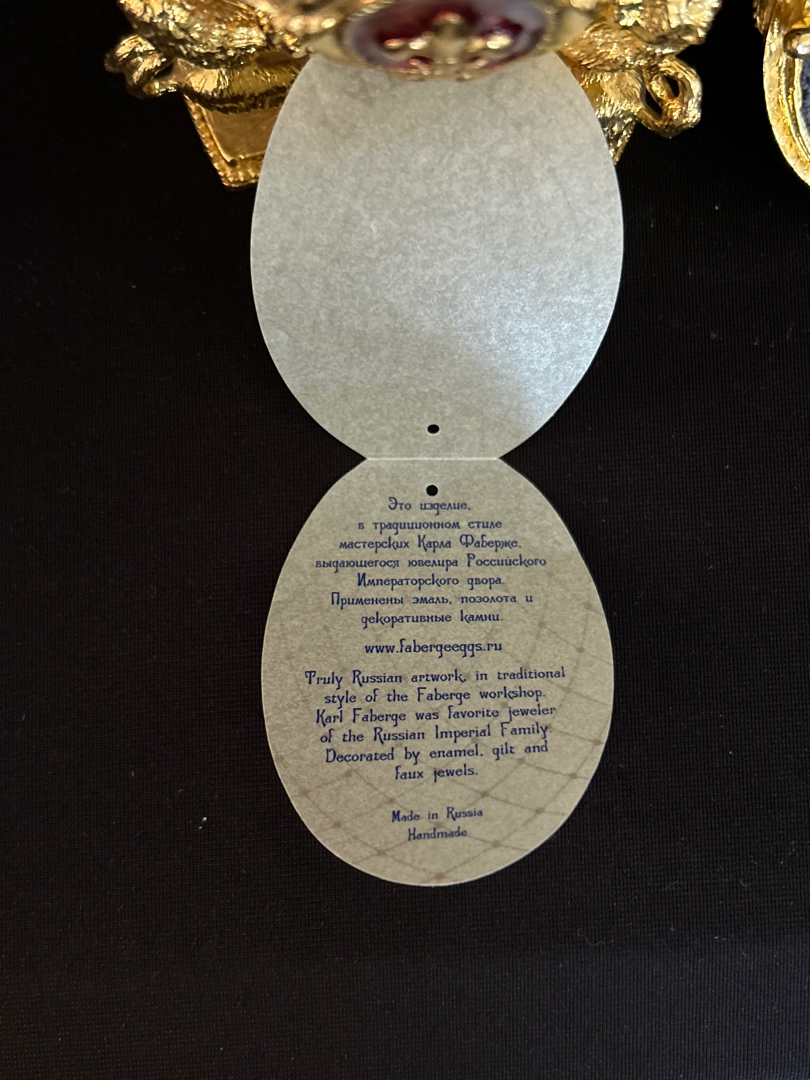 Это изделие,
в традиционном стиле
мастерских Карла Фаберже,
выдающегося ювелира Российского
Императорского двора.
Применены эмаль, позолота и
декоративные камни.
www.fabergeeggs.ru
Truly Russian artwork, in traditional
style of the Faberge workshop.
Karl Faberge was favorite jeweler
of the Russian Imperial Family.
Decorated by enamel, gilt and
faux jewels.
Made in Russia
Handmade